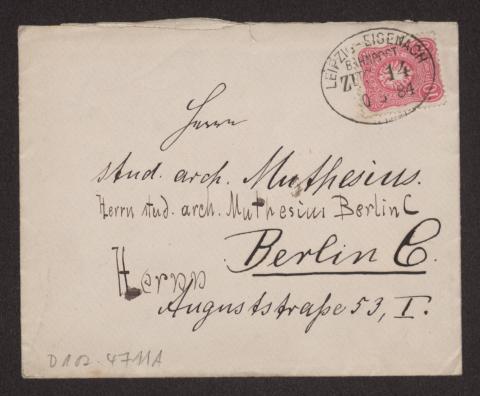 LEIPZIG-EISENACH
BAHNPOST
14
84
10
Herrn
stud. arch. Muthesius.
Herrn stud. arch. Muthesius Berlin C
Berlin C.
Herrn
Auguststraße 53, I.
D 102-4711A